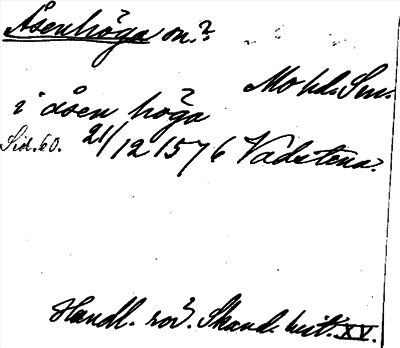 Åsenhöga sn.?
Mo hd. Sm.
i åsen höga
Sid. 60. 21/12 1576 Vadstena.
Handl. rör. Skand. hist. XV.